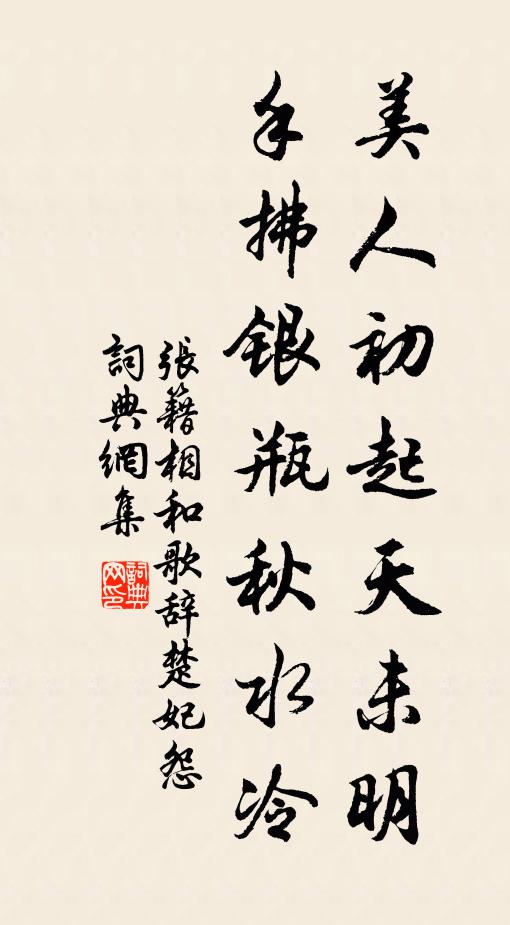 美人初起天未明
手拂銀瓶秋水冷
張籍相和歌辞楚妃怨
詞典網集
詞典网印